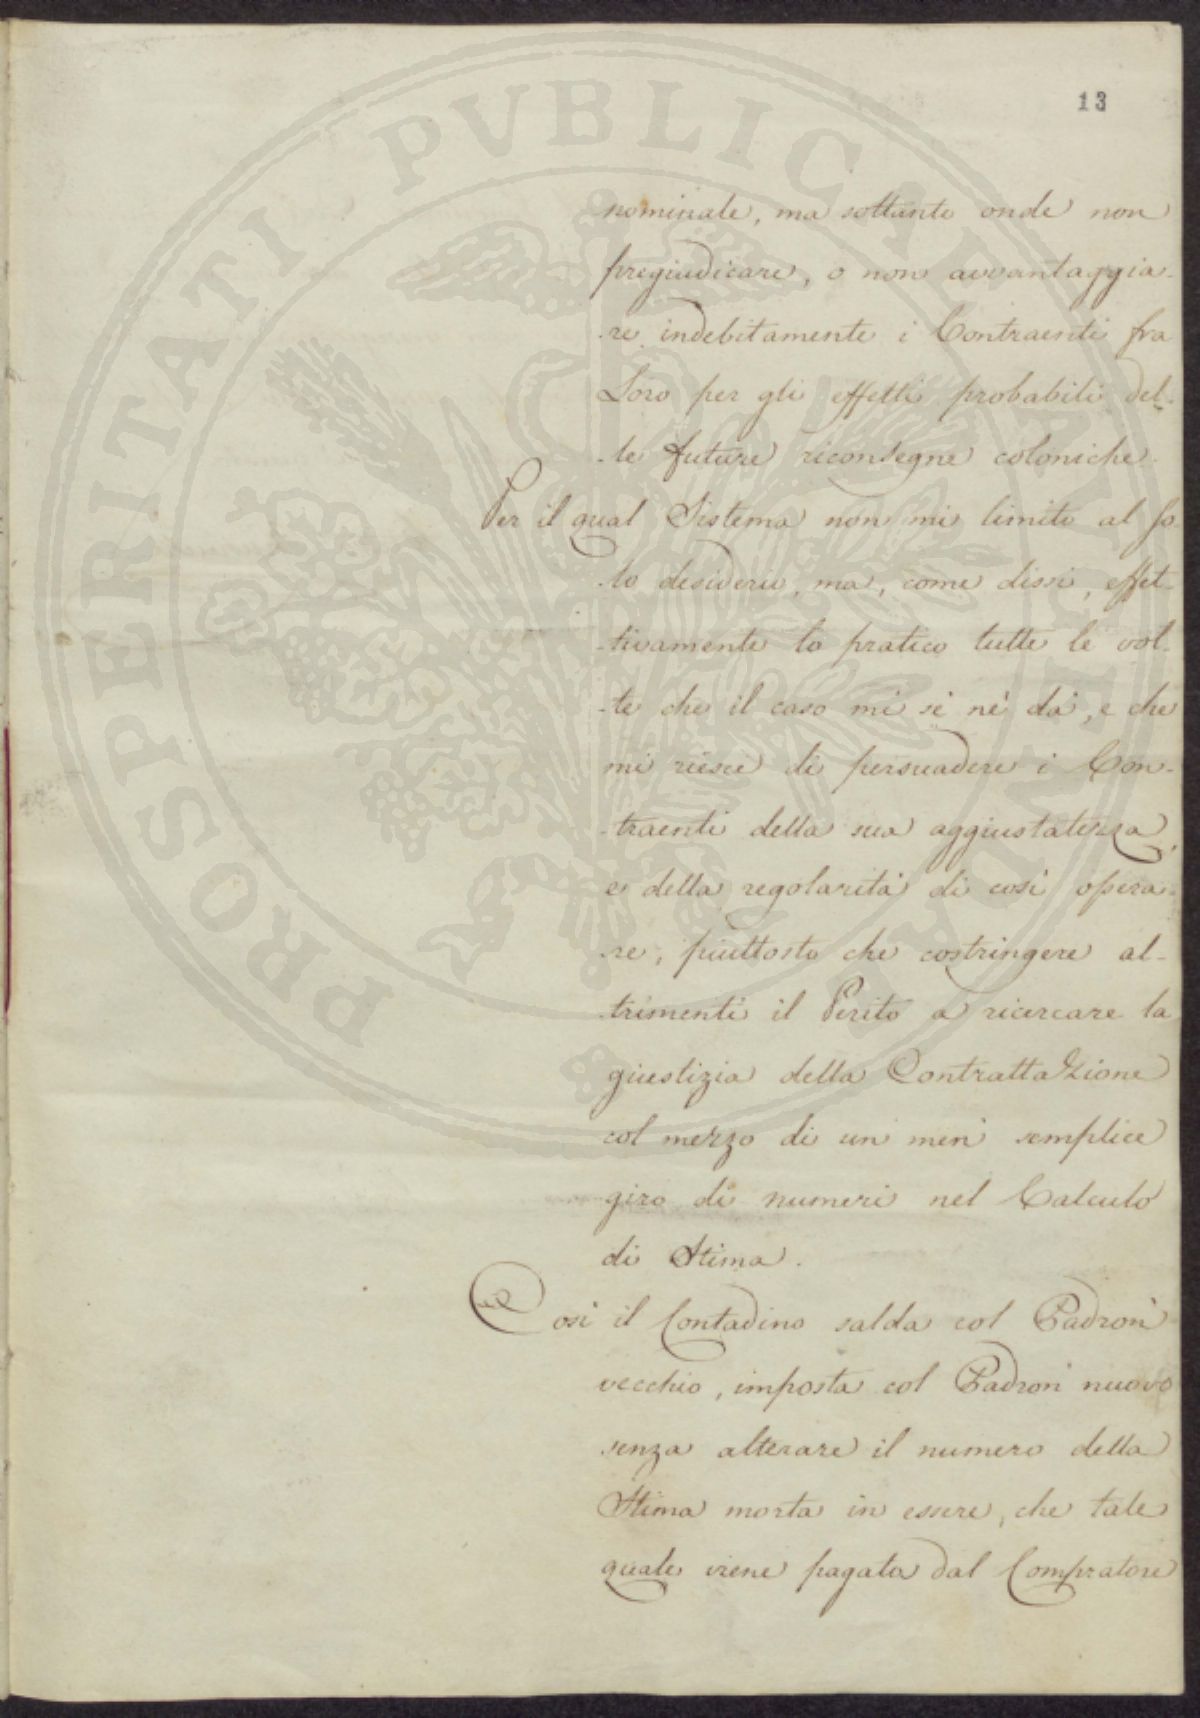 13
nominale, ma soltanto onde non
pregiudicare, o non avvantaggia-
-re indebitamente i Contraenti fra
Loro per gli effetti probabili del-
-le future riconsegne coloniche.
Per il qual Sistema non mi limito al so
-lo desiderio, ma, come dissi, effet-
-tivamente lo pratico tutte le vol-
-te che il caso mi si nè dà, e che
mi riesce di persuadere i Con-
-traenti della sua aggiustatezza,
e della regolarità di così opera-
-re, piuttosto che costringere al-
-trimenti il Perito a ricercare la
giustizia della Contrattazione
col mezzo di un men semplice
giro di numeri nel Calculo
di Stima.
Così il Contadino salda col Padron
vecchio, imposta col Padron nuovo
senza alterare il numero della
Stima morta in essere, che tale
quale viene pagata dal Compratore
PROSPERITATI PVBLICAE AVGENDAE